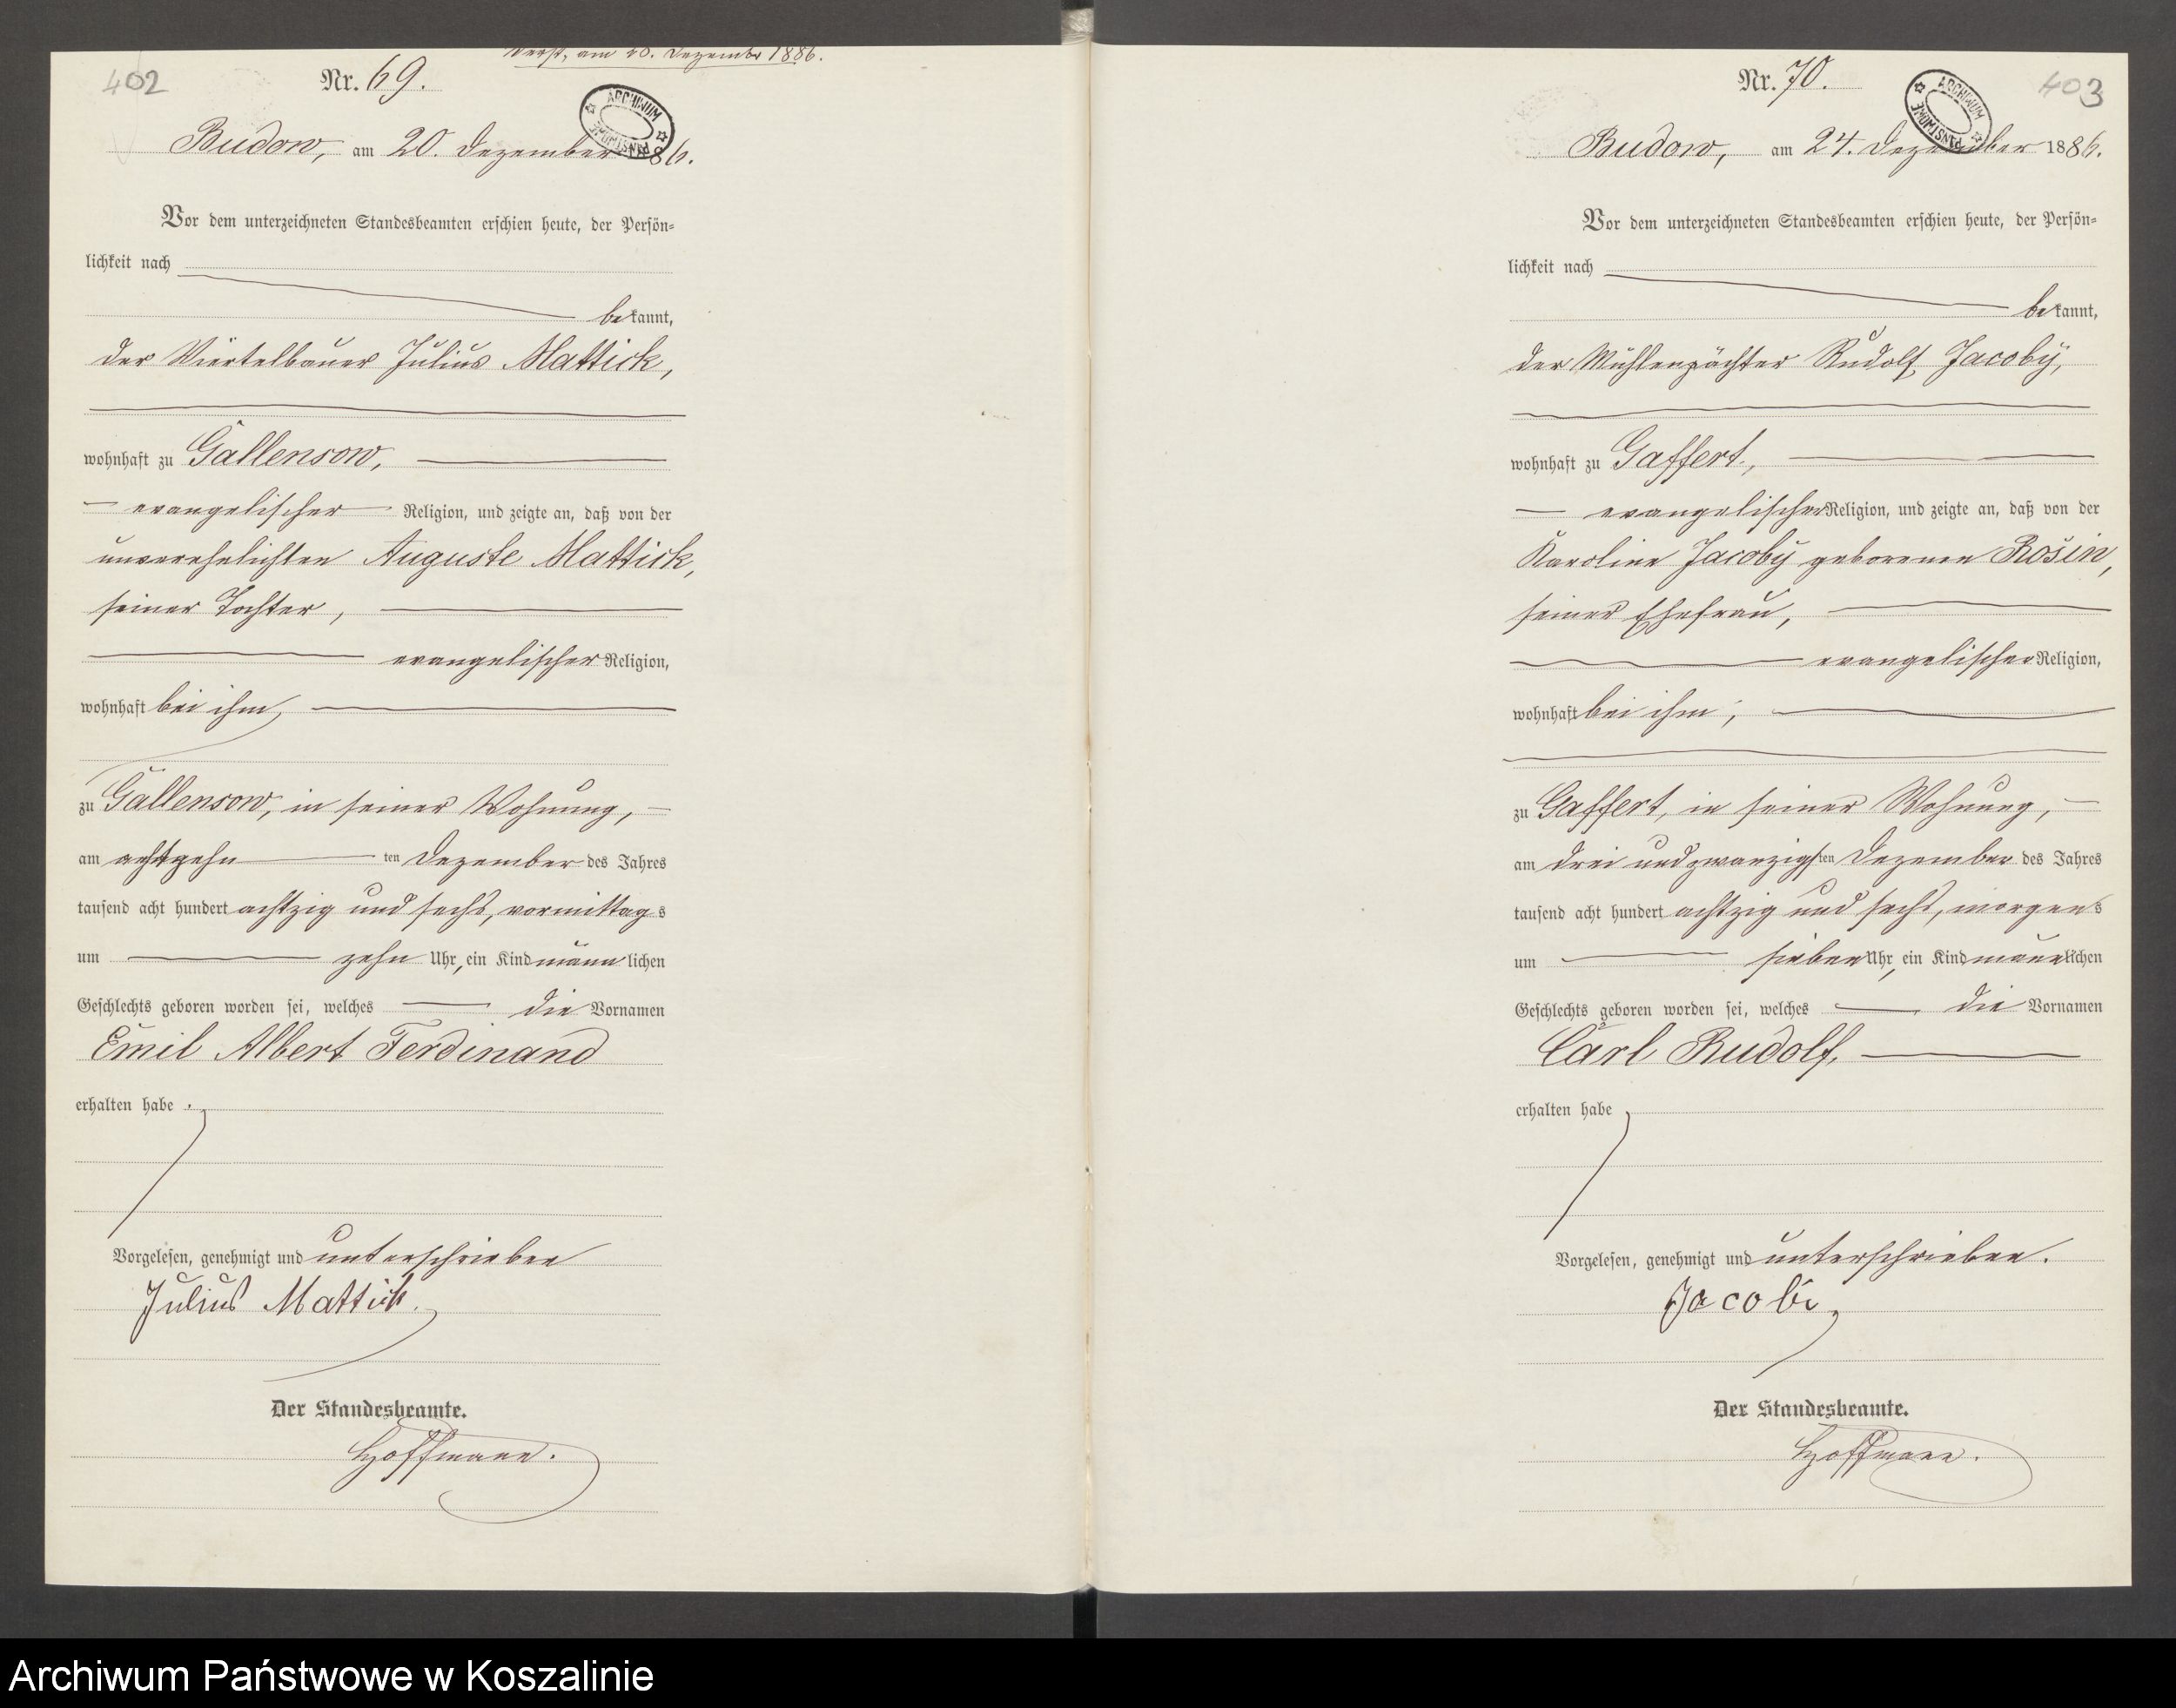 402
am 20. Dezember 1886.
Nr. 69.
ARCHIWUM PAŃSTWOWE
Budow, am 20. Dezember 1886.
Vor dem unterzeichneten Standesbeamten erschien heute, der Persön-
lichkeit nach
bekannt,
der Viertelbauer Julius Mattick,
wohnhaft zu Gallensow,
evangelischer Religion, und zeigte an, daß von der
unverehelichten Auguste Mattick,
seiner Tochter,
evangelischer Religion,
wohnhaft bei ihm,
zu Gallensow, in seiner Wohnung,
am achtzehnten Dezember des Jahres
tausend acht hundert achtzig und sechs, vormittags
um zehn Uhr, ein Kind männlichen
Geschlechts geboren worden sei, welches die Vornamen
Emil Albert Ferdinand
erhalten habe.
Vorgelesen, genehmigt und unterschrieben
Julius Mattick.
Der Standesbeamte.
Hoffmann.
Nr. 70.
403
ARCHIWUM PAŃSTWOWE
Budow, am 24. Dezember 1886.
Vor dem unterzeichneten Standesbeamten erschien heute, der Persön-
lichkeit nach
bekannt,
der Mühlenpächter Rudolf Jacoby,
wohnhaft zu Gaffert,
evangelischer Religion, und zeigte an, daß von der
Karoline Jacoby geborenen Rosin,
seiner Ehefrau,
evangelischer Religion,
wohnhaft bei ihm,
zu Gaffert, in seiner Wohnung,
am drei und zwanzigsten Dezember des Jahres
tausend acht hundert achtzig und sechs, morgens
um sieben Uhr, ein Kind männlichen
Geschlechts geboren worden sei, welches die Vornamen
Carl Rudolf,
erhalten habe
Vorgelesen, genehmigt und unterschrieben.
Jacobi
Der Standesbeamte.
Hoffmann.
Archiwum Państwowe w Koszalinie